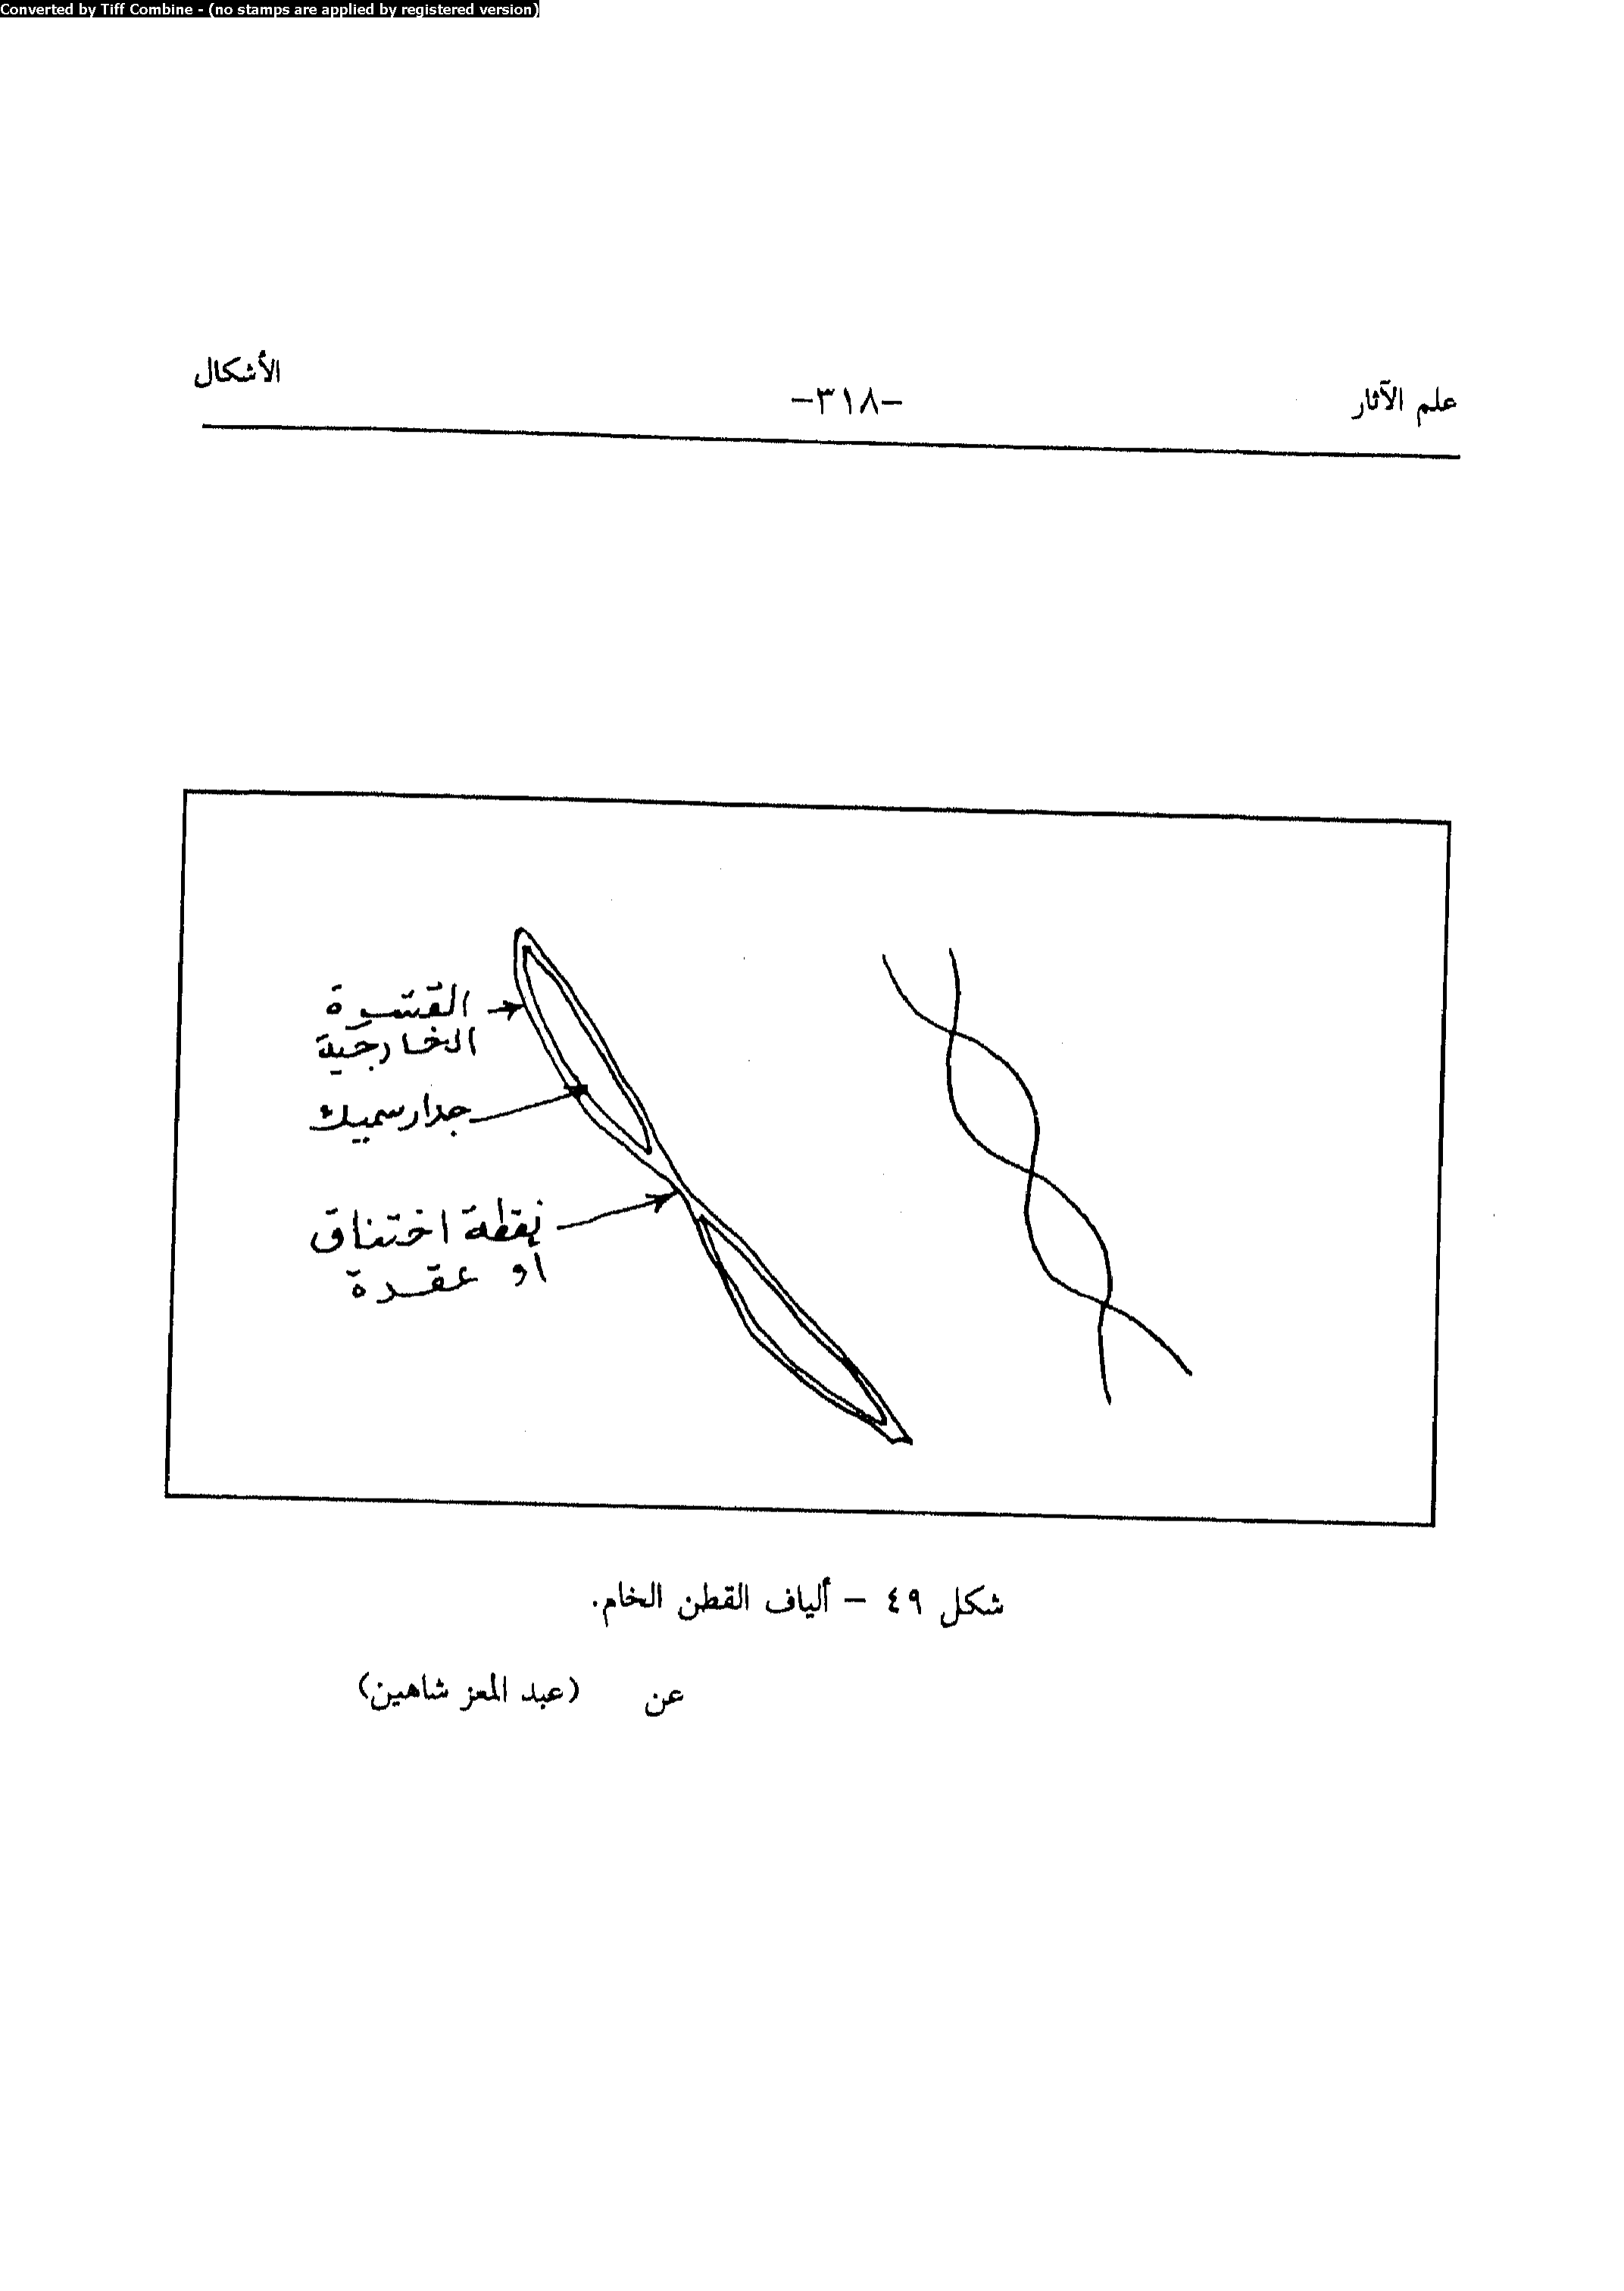 Converted by Tiff Combine - (no stamps are applied by registered version)
علم الآثار
-٣١٨-
الأشكال
القشرة
الخارجية
جدار سميك
نقطة اختناق
او عقدة
شكل ٤٩ - ألياف القطن الخام.
عن (عبد المعز شاهين)